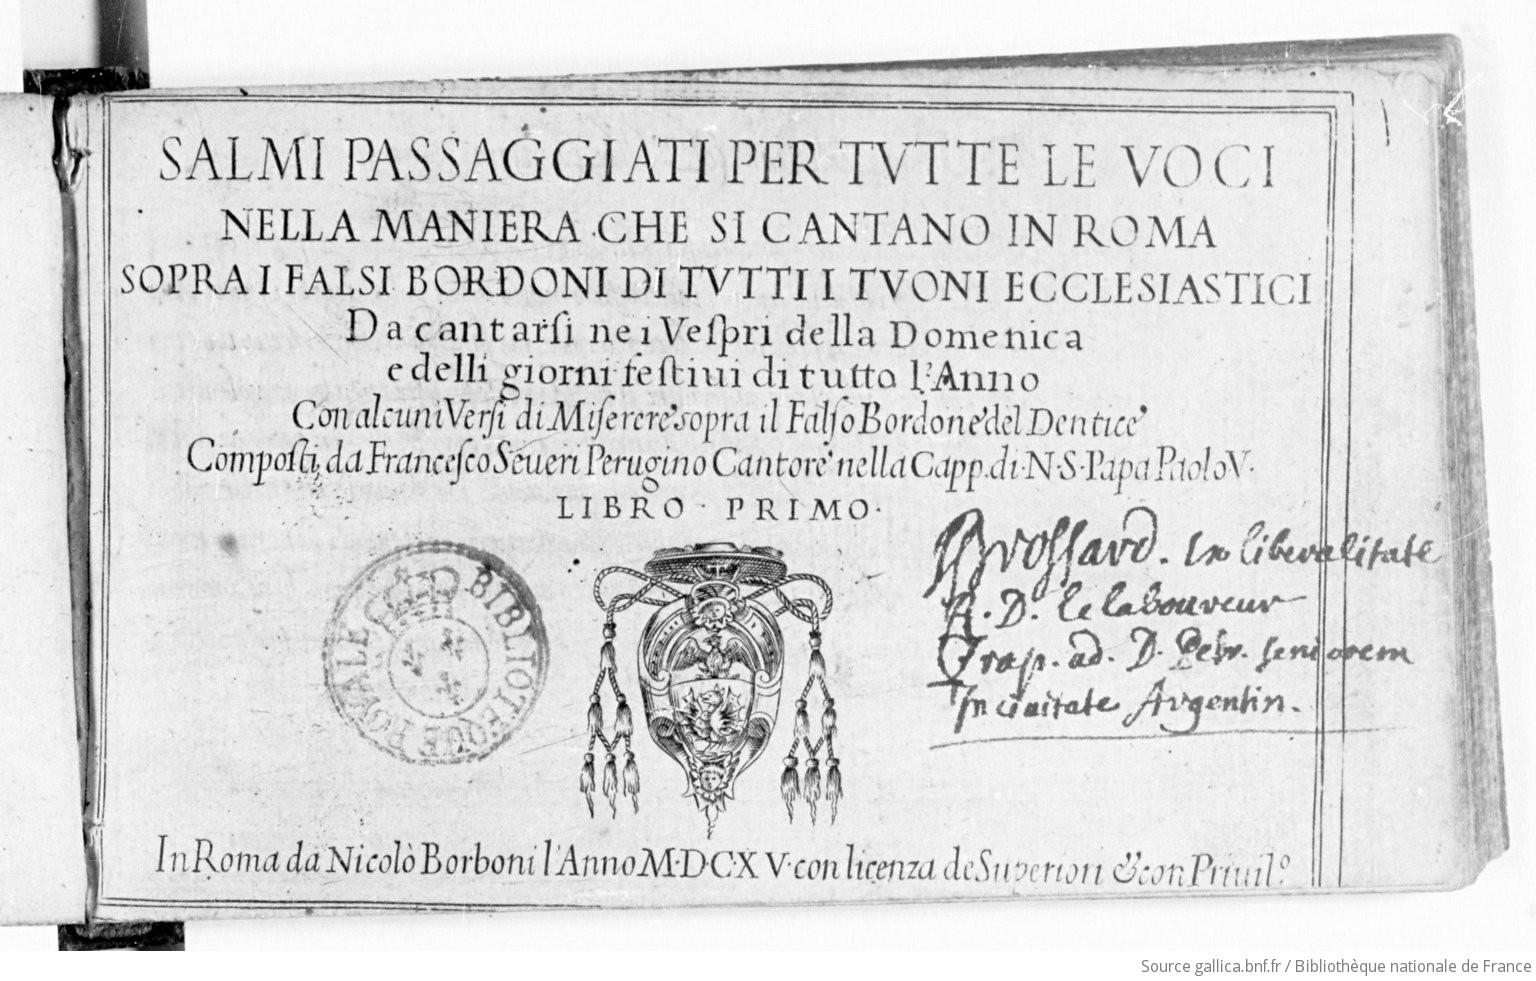 SALMI PASSAGGIATI PER TVTTE LE VOCI
NELLA MANIERA CHE SI CANTANO IN ROMA
SOPRA I FALSI BORDONI DI TVTTI I TVONI ECCLESIASTICI
Da cantarſi ne i Veſpri della Domenica
e delli giorni feſtiui di tutto l'Anno
Con alcuni Verſi di Miſerere sopra il Falſo Bordone del Dentice
Compoſti da Franceſco Seueri Perugino Cantore nella Capp. di N.S. Papa Paolo V.
LIBRO PRIMO.
Broſſard. ex liberalitate
D. le laboureur
ad. D. Petr. seniorem
In ciuitate Argentin.
BIBLIOTEQUE ROYALE
In Roma da Nicolò Borboni l'Anno M.D.C.XV. con licenza de Superiori & con Priuil.º
Source gallica.bnf.fr / Bibliothèque nationale de France